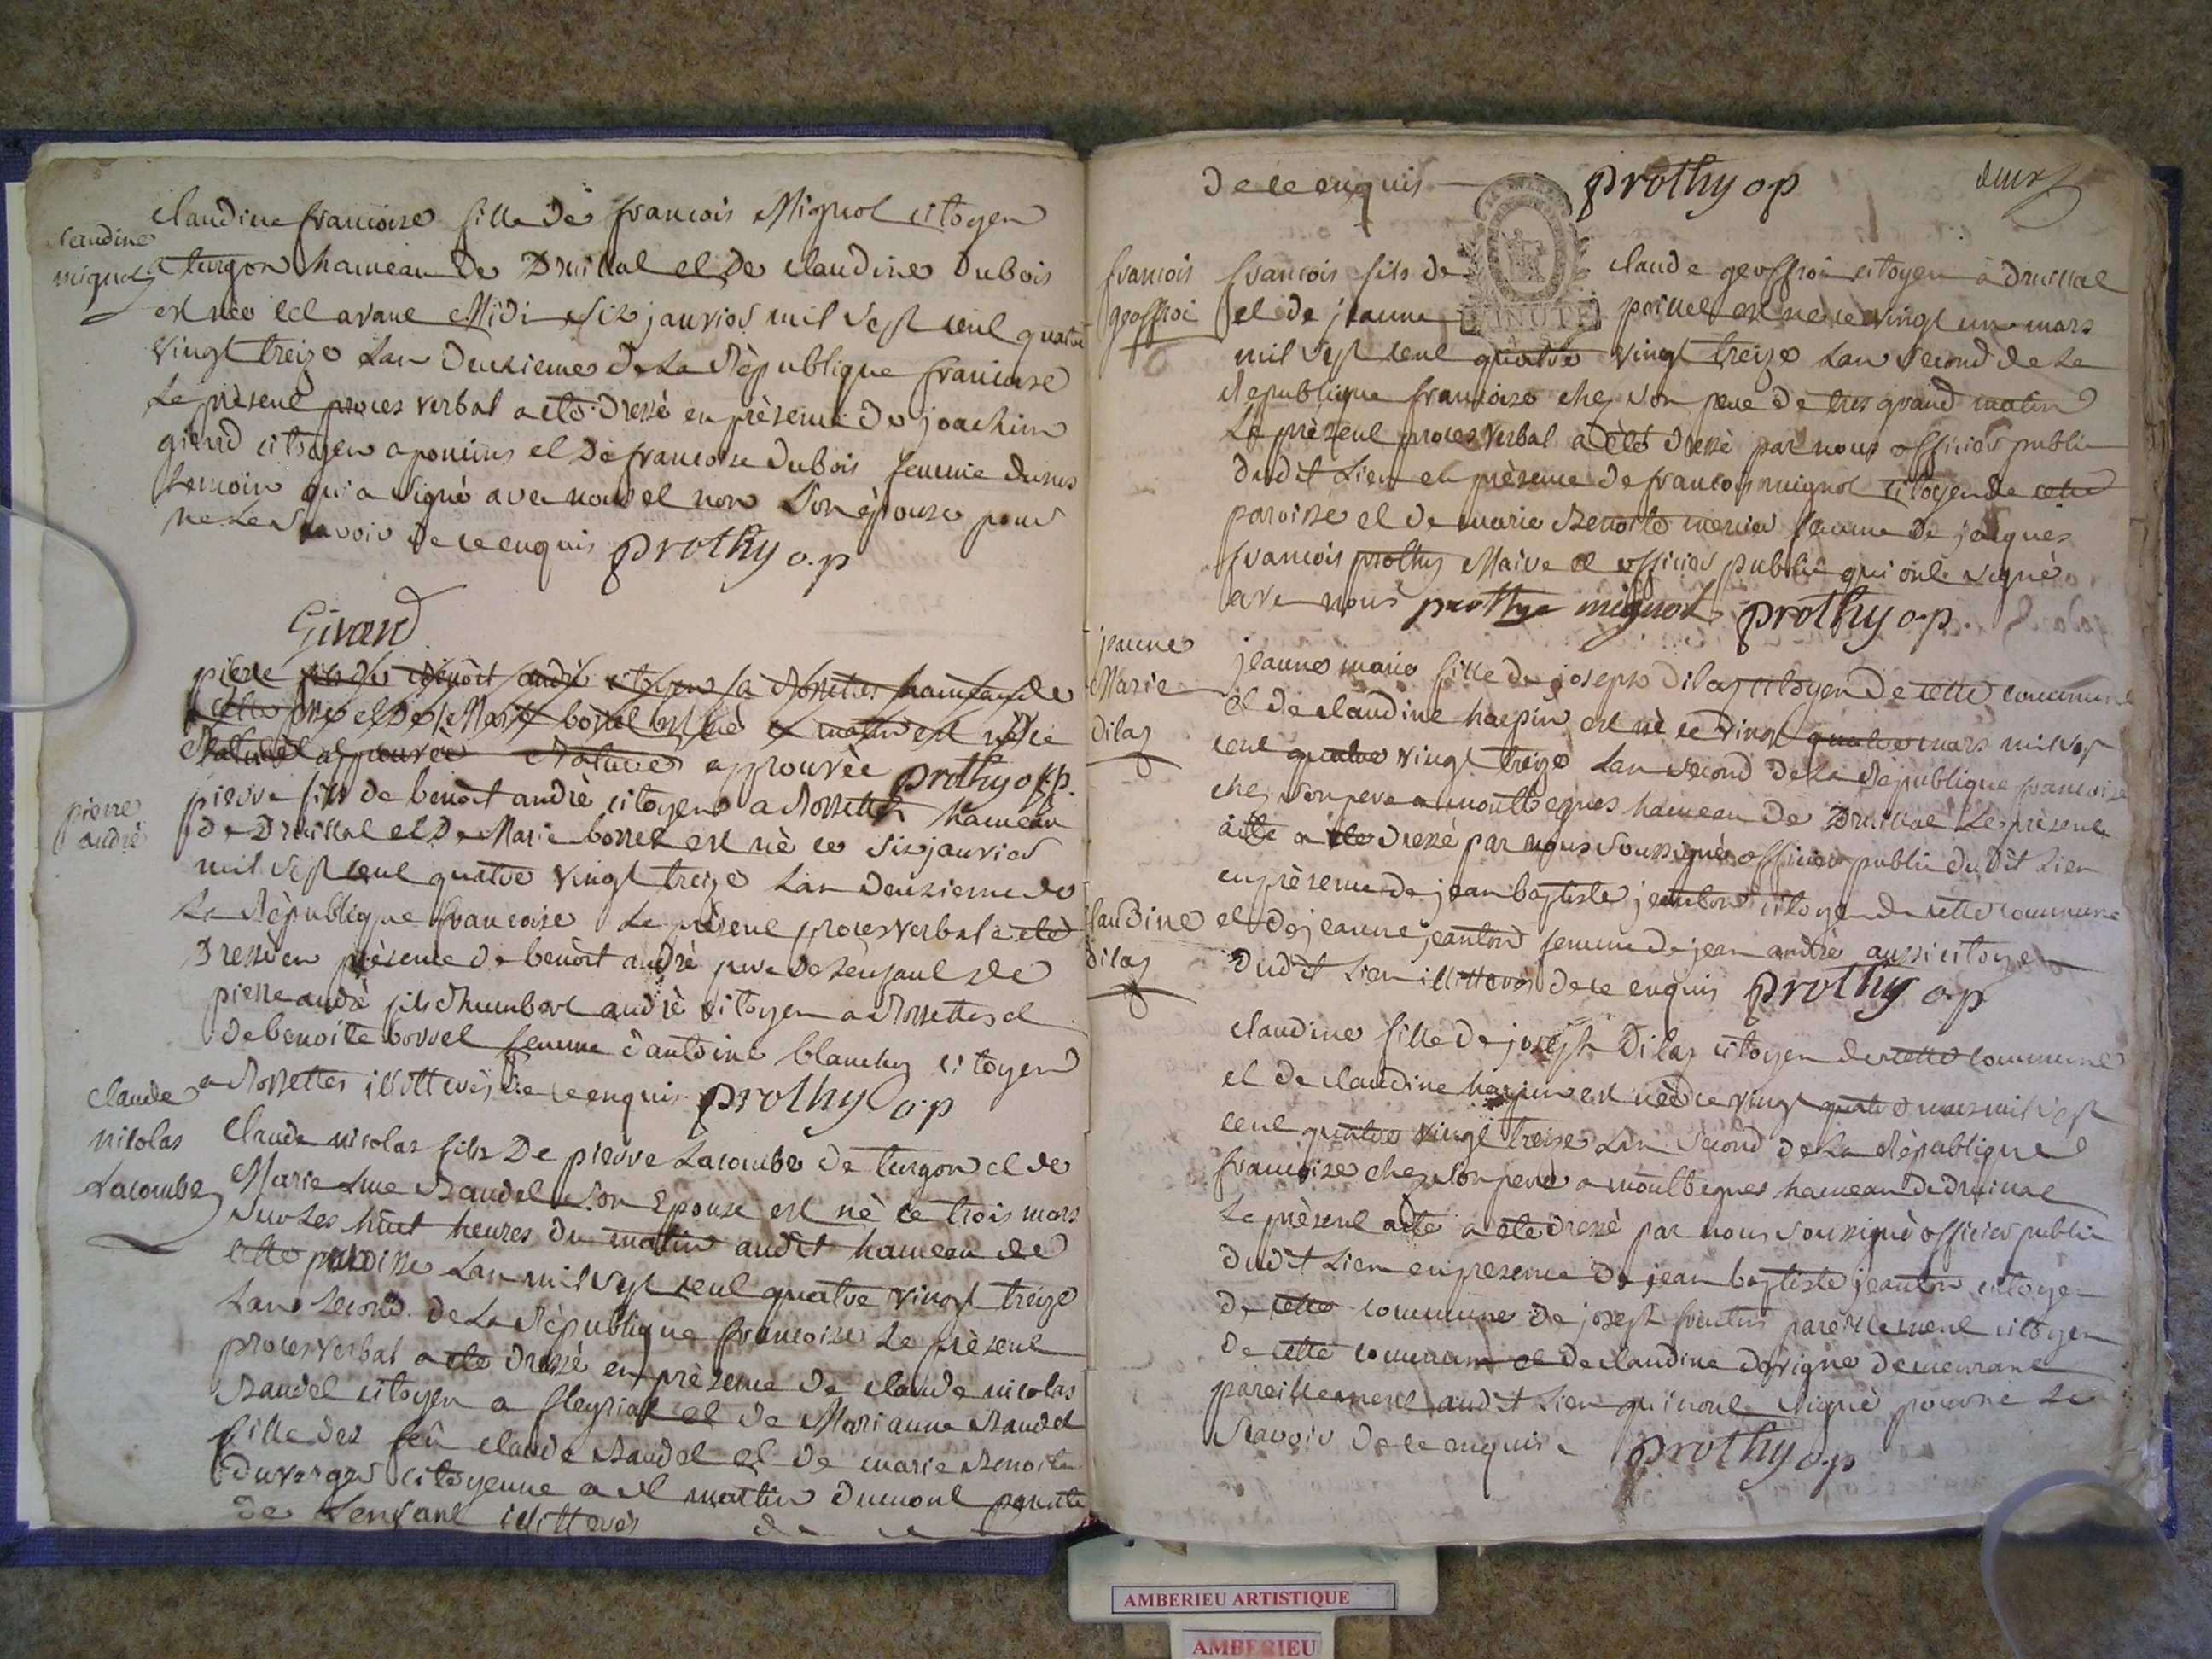 claudine francoise fille de francois Mignol citoyen
claudine
mignol
a turgon hameau de Druillal el de claudine Dubois
est née cel avant Midi six janvier mil sept cent quatre
vingt treize Lan Deuxieme de La République francoise
Le présent proces verbal a eté dressé en présence de joachim
girard citoyen a poncins el de francoise Dubois femme
temoin qui a signé avec nous el non Son épouse pour
ne Le Savoir de ce enquis prothy o.p
Girard
pierre fils de Benoit andré citoyen a Rossettes hameau de
el de Marie borrel est né
approuvée prothy o.p.
pierre
andré
pierre fils de benoit andré citoyen a Rossettes hameau
de Druillal el De Marie borrel est né ce six janvier
mil sept cent quatre vingt treize Lan Deuxieme de
La République francoise Le présent proces verbal a eté
Dressé en présence de benoit andré pere de Lenfant de
pierre andré fils dhumbert andré citoyen a Rossettes el
de benoite borrel femme d'antoine blanchy citoyen
a Rossettes illitterés de ce enquis prothy o.p
claude
nicolas
Lacombe
Claude nicolas fils De pierre Lacombe de turgon el de
Marie Baudel Son Epouse est né ce trois mars
Sur Les huit heures du matin audit hameau de
cette paroisse Lan mil sept cent quatre vingt treize
Lan Second de La République francoise Le présent
proces verbal a eté dressé en présence de claude nicolas
Baudel citoyen a fleyriat el de Marianne Baudel
fille de feu claude Baudel el de marie Benoite
Duverger citoyenne a st martin dumont parente
de Lenfant illitterés de ce
de ce enquis prothy o.p deux
MINUTE
francois
geoffroi
francois fils de claude geoffroi citoyen a druillal
el de jeanne est né ce vingt un mars
mil sept cent quatre vingt treize Lan Second de La
République francoise chez son pere de tres grand matin
Le présent proces verbal a été dressé par nous officier public
dudit Lieu en présence de francois mignol citoyen de cette
paroisse el de marie Benoite femme de jacques
francois prothy Maire el officier public qui ont signé
avec nous prothy mignol prothy o.p.
jeanne
Marie
Dilas
jeanne marie fille de joseph Dilas citoyen de cette commune
el de claudine harpin est né ce vingt quatre mars mil sept
cent quatre vingt treize Lan Second de La République francoise
chez son pere a monttegues hameau de Druillal Le présent
acte a eté dressé par nous soussigné officier public dudit Lieu
en présence de jean baptiste jeanton citoyen de cette commune
el de jeanne jeanton femme de jean andré aussi citoyen
dudit Lieu illitterés de ce enquis prothy o.p
Claudine
Dilas
claudine fille de joseph Dilas citoyen de cette commune
el de claudine harpin est née ce vingt quatre mars mil sept
cent quatre vingt treize Lan Second de La République
francoise chez son pere a monttegues hameau de druillal
Le présent acte a eté dressé par nous soussigné officier public
dudit Lieu en présence de jean baptiste jeanton citoyen
de cette commune de joseph pareillement citoyen
de cette commune el de claudine davigne demeurant
pareillement audit Lieu qui nont signé pour ne Le
Scavoir de ce enquis prothy o.p
AMBERIEU ARTISTIQUE
AMBERIEU